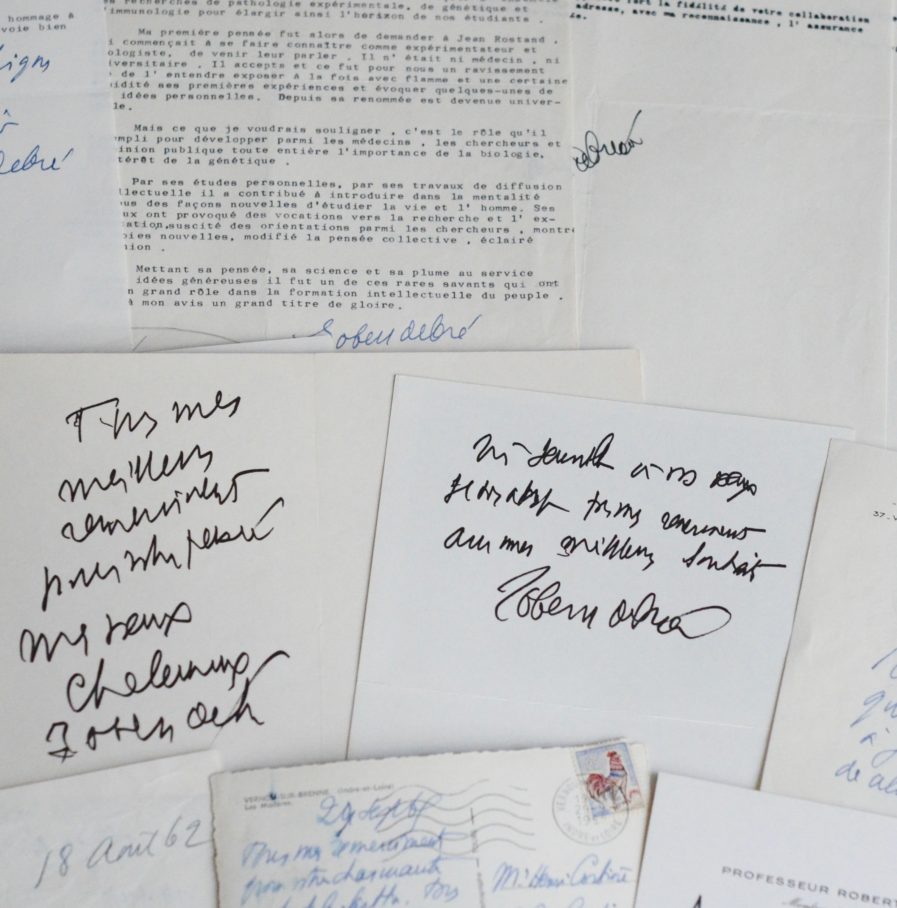 hommage à
voie bien
Debré
recherches de pathologie expérimentale, de génétique et
'immunologie pour élargir ainsi l'horizon de nos étudiants .
Ma première pensée fut alors de demander à Jean Rostand ,
i commençait à se faire connaître comme expérimentateur et
ologiste, de venir leur parler . Il n' était ni médecin , ni
iversitaire . Il accepta et ce fut pour nous un ravissement
de l' entendre exposer à la fois avec flamme et une certaine
idité ses premières expériences et évoquer quelques-unes de
idées personnelles. Depuis sa renommée est devenue univer-
le.
Mais ce que je voudrais souligner , c'est le rôle qu'il
mpli pour développer parmi les médecins , les chercheurs et
inion publique toute entière l'importance de la biologie,
térêt de la génétique .
Par ses études personnelles, par ses travaux de diffusion
llectuelle il a contribué à introduire dans la mentalité
ous des façons nouvelles d'étudier la vie et l' homme. Ses
ux ont provoqué des vocations vers la recherche et l' ex-
ation,suscité des orientations parmi les chercheurs , montré
oies nouvelles, modifié la pensée collective , éclairé
ion .
Mettant sa pensée, sa science et sa plume au service
idées généreuses il fut un de ces rares savants qui ont
n grand rôle dans la formation intellectuelle du peuple .
à mon avis un grand titre de gloire.
Robert Debré
la fidélité de votre collaboration
adresse, avec ma reconnaissance , l' assurance
Debré
Tous mes
meilleurs
remerciements
pour votre pensée
mes voeux
chaleureux
Robert Debré
à vos voeux
tous mes remerciements
avec mes meilleurs souhaits
Robert Debré
37.
qu
à
de al
18 Août 62
VERNOU-SUR-BRENNE (Indre-et-Loire)
Les Madères
29 Sept
Tous mes remerciements
pour votre charmante
INDRE ET LOIRE
Mr Henri
PROFESSEUR ROBER